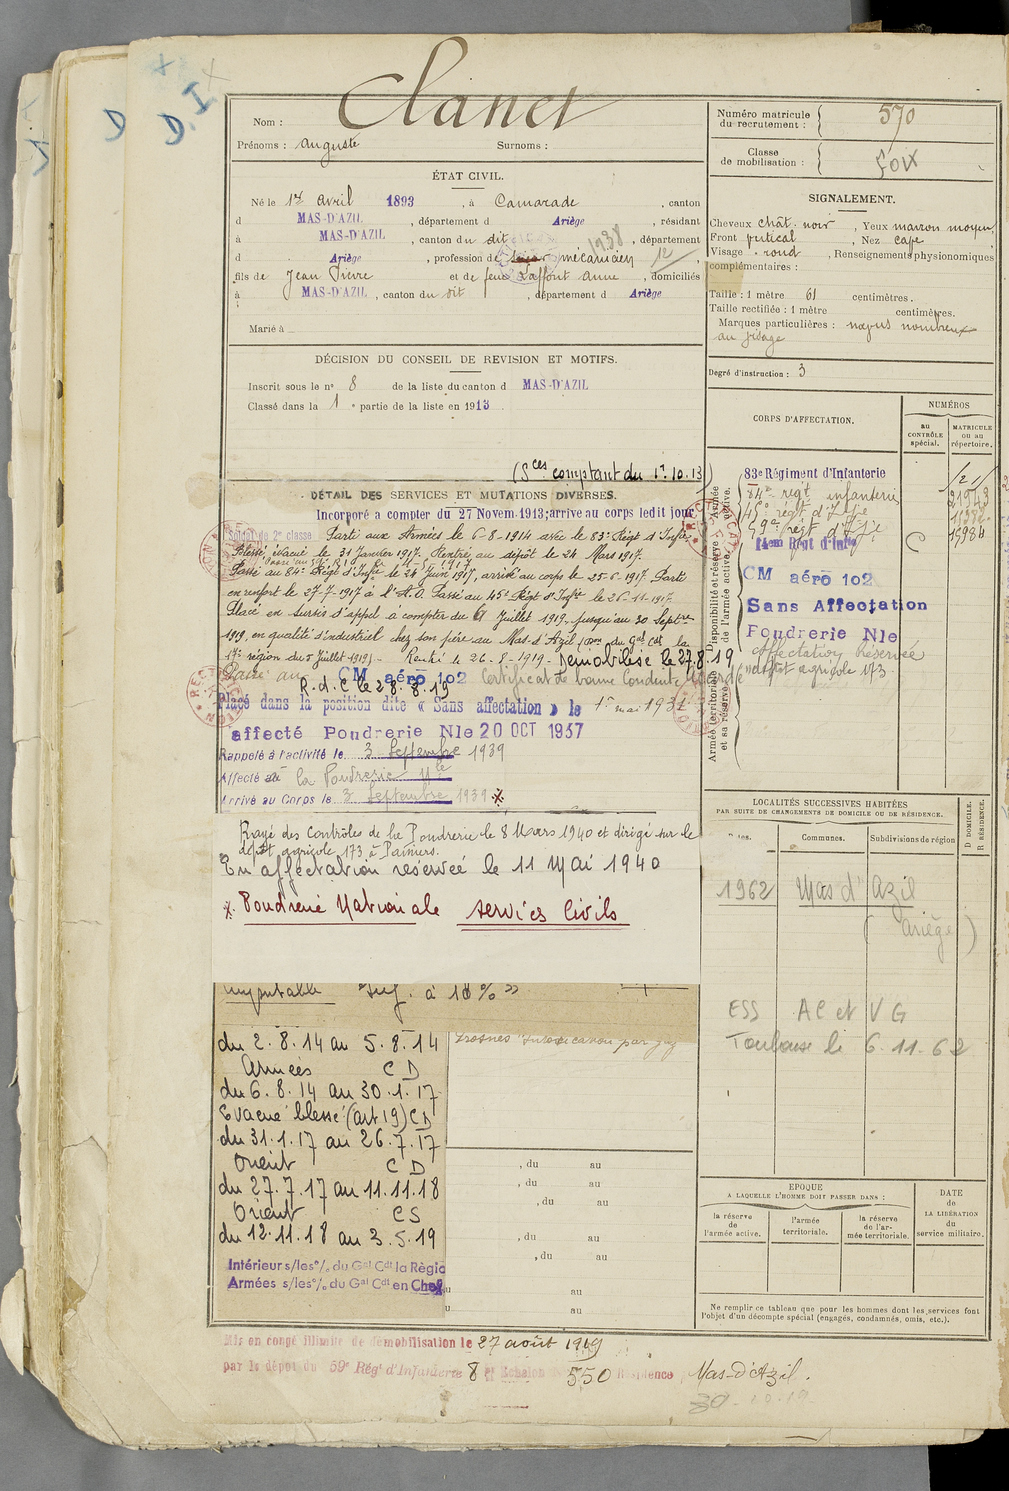 D D.I
Clanet
Nom :
Prénoms : Auguste Surnoms :
ÉTAT CIVIL.
Né le 1er avril 1893, à Camarade, canton
d MAS-D'AZIL, département d Ariège, résidant
à MAS-D'AZIL, canton du dit, département
d Ariège, profession de mécanicien
1938
12
fils de Jean Pierre et de feue Laffont Anne, domiciliés
à MAS-D'AZIL, canton du dit, département d Ariège
Marié à
DÉCISION DU CONSEIL DE REVISION ET MOTIFS.
Inscrit sous le n° 8 de la liste du canton d MAS-D'AZIL
Classé dans la 1e partie de la liste en 1913
(Sces comptant du 1.10.13)
DÉTAIL DES SERVICES ET MUTATIONS DIVERSES.
Incorporé à compter du 27 Novem. 1913; arrivé au corps ledit jour
Soldat de 2e classe Parti aux Armées le 6-8-1914 avec le 83e Régt d'Infie
Blessé, évacué le 31 Janvier 1917. Rentré au dépôt le 24 Mars 1917.
Passé au 84e Régt d'Infie le 24 Juin 1917, arrivé au corps le 25-6-1917. Parti
en renfort le 27-7-1917 à l'A.O. Passé au 45e Régt d'Inft le 26-11-1917
Placé en sursis d'appel à compter du 61 Juillet 1919, jusqu'au 30 Septbre
1919, en qualité d'industriel chez son père au Mas-d'Azil (Don du Gal Cdt la
17e région du 5 Juillet 1919) - Rentré le 26-8-1919. Démobilisé le 27.8.19
Placé au CM aéro 102 Certificat de bonne Conduite
R.d.C le 28.8.19
Placé dans la position dite « Sans affectation » le 1er mai 1931
affecté Poudrerie Nle 20 OCT 1937
Rappelé à l'activité le 3 Septembre 1939
Affecté à la Poudrerie Nle
Arrivé au Corps le 3 Septembre 1939
Rayé des Contrôles de la Poudrerie le 8 Mars 1940 et dirigé sur le
dépôt agricole 173 à Pamiers.
En affectation réservée le 11 Mai 1940
x Poudrerie Nationale services Civils
imputable inf. à 10% »
du 2.8.14 au 5.8.14
Armées CD
du 6.8.14 au 30.1.17
Evacué blessé (art 19) CD
du 31.1.17 au 26.7.17
Orient CD
du 27.7.17 au 11.11.18
Orient CS
du 12.11.18 au 3.5.19
Intérieur s/les °/. du Gal Cdt la Régio
Armées s/les °/. du Gal Cdt en Chef
Intoxication par gaz
, du au
, du au
, du au
, du au
, du au
u au
u au
Mis en congé illimité de démobilisation le 27 août 1919
par le dépôt du 59e Régt d'Infanterie 8e Echelon 550 Résidence Mas-d'Azil.
30-10-19
Numéro matricule
du recrutement : 570
Classe
de mobilisation : Foix
SIGNALEMENT.
Cheveux chât. noir, Yeux marron moyen,
Front vertical, Nez cave
Visage rond, Renseignements physionomiques
complémentaires :
Taille : 1 mètre 61 centimètres.
Taille rectifiée : 1 mètre centimètres.
Marques particulières : nævus nombreux
au visage
Degré d'instruction : 3
CORPS D'AFFECTATION.
NUMÉROS
au CONTRÔLE spécial.
MATRICULE ou au répertoire.
Disponibilité et réserve de l'armée active. Armée active.
Armée territoriale et sa réserve
83e Régiment d'Infanterie
84e régt infanterie
45e régt d'Infie
59e régt d'Infie
14em Régt d'Infie
C
CM aéro 102
Sans Affectation
Poudrerie Nle
affectation Réservée
dépôt agricole 173
LOCALITÉS SUCCESSIVES HABITÉES
PAR SUITE DE CHANGEMENTS DE DOMICILE OU DE RÉSIDENCE.
D. DOMICILE.
R. RÉSIDENCE.
Communes. Subdivisions de région
1962 Mas d'Azil
(Ariège)
ESS AC et VG
Toulouse le 6.11.62
EPOQUE
A LAQUELLE L'HOMME DOIT PASSER DANS :
la réserve de l'armée active.
l'armée territoriale.
la réserve de l'armée territoriale.
DATE de LA LIBÉRATION du service militaire.
Ne remplir ce tableau que pour les hommes dont les services font
l'objet d'un décompte spécial (engagés, condamnés, omis, etc.).